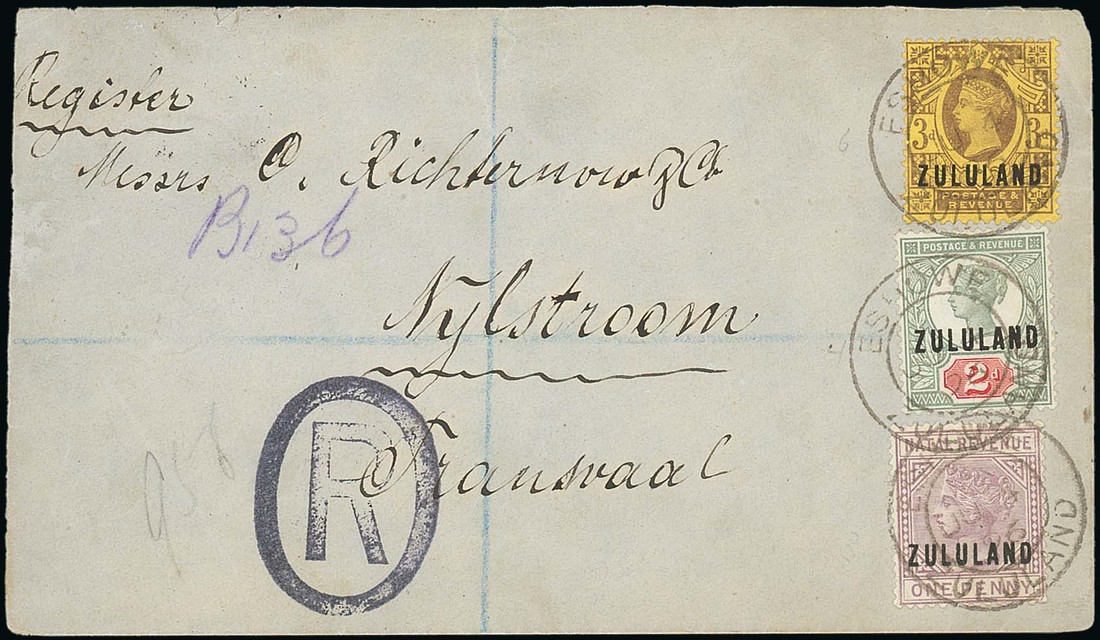 Register
Messrs O. Richternow & Co
B136
Nylstroom
Transvaal
R
956
6
3d 3d
ZULULAND
POSTAGE &
REVENUE
POSTAGE & REVENUE
ZULULAND
2d
NATAL REVENUE
ZULULAND
ONE PENNY
ESHOWE
ZULULAND